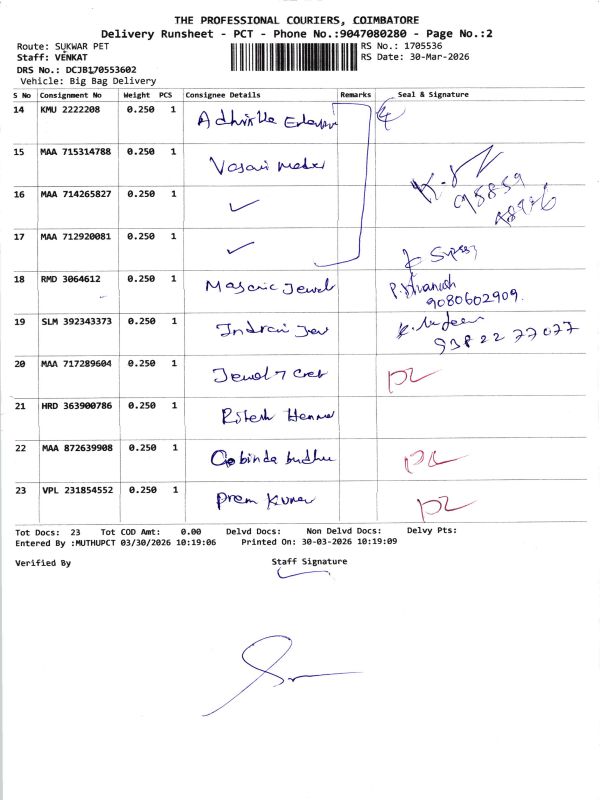 THE PROFESSIONAL COURIERS, COIMBATORE
Delivery Runsheet - PCT - Phone No.:9047080280 - Page No.:2
Route: SUKWAR PET
RS No.: 1705536
Staff: VENKAT
RS Date: 30-Mar-2026
DRS No.: DCJB170553602
Vehicle: Big Bag Delivery
S No Consignment No Weight PCS Consignee Details Remarks Seal & Signature
14 KMU 2222208 0.250 1
15 MAA 715314788 0.250 1 Vasavi
16 MAA 714265827 0.250 1 ✓
17 MAA 712920081 0.250 1 ✓
18 RMD 3064612 0.250 1 Jewel
9080602909.
19 SLM 392343373 0.250 1
93822 77077
20 MAA 717289604 0.250 1 Jewel
21 HRD 363900786 0.250 1 Ritesh
22 MAA 872639908 0.250 1 Gobinda
23 VPL 231854552 0.250 1 Prem Kumar
Tot Docs: 23 Tot COD Amt: 0.00 Delvd Docs: Non Delvd Docs: Delvy Pts:
Entered By :MUTHUPCT 03/30/2026 10:19:06 Printed On: 30-03-2026 10:19:09
Verified By Staff Signature